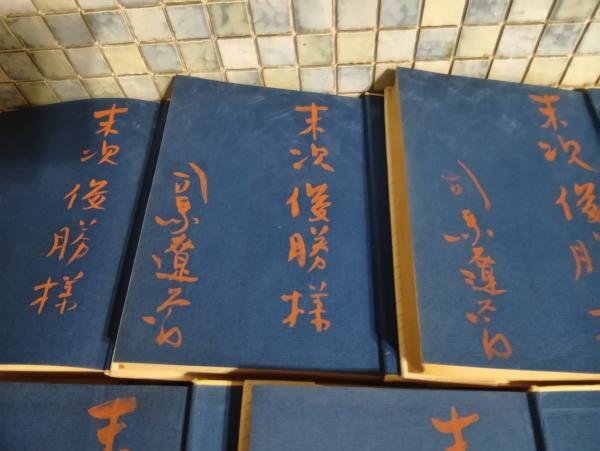 末次俊勝様
司馬遼太郎
末次俊勝様
司馬遼太郎
末次俊勝様
末
末